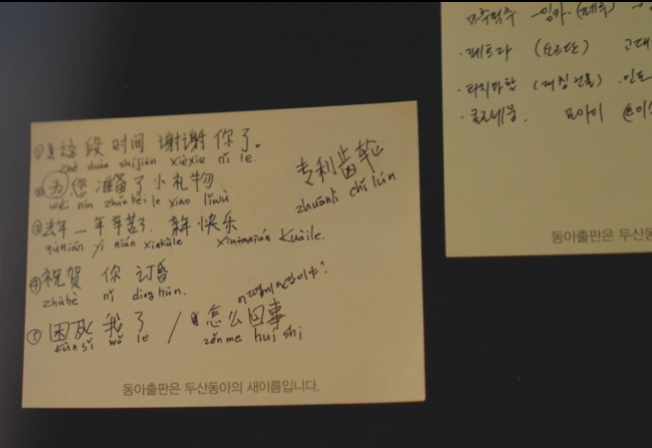 ① 这段时间 谢谢 你了。
zhè duàn shíjiān xièxie nǐ le.
② 为 您 准备了 小礼物
wè nín zhǔnbèi le xiǎo lǐwù
专利 齿轮
zhuānlì chǐ lún
③ 去年 一年 辛苦了. 新年 快乐
qùnián yì nián xīnkǔle xīnnián kuàile.
④ 祝贺 你 订婚
zhùhè nǐ dìng hūn.
⑤ 困死 我 了 / 怎么回事
kùn sǐ wǒ le zěn me huí shì
동아출판은 두산동아의 새이름입니다.
마추픽추 - 잉카. (페루)
· 페트라 (요르단) 고대
· 타지마할 (대칭건물). 인도
모아이
동아출판은 두산동